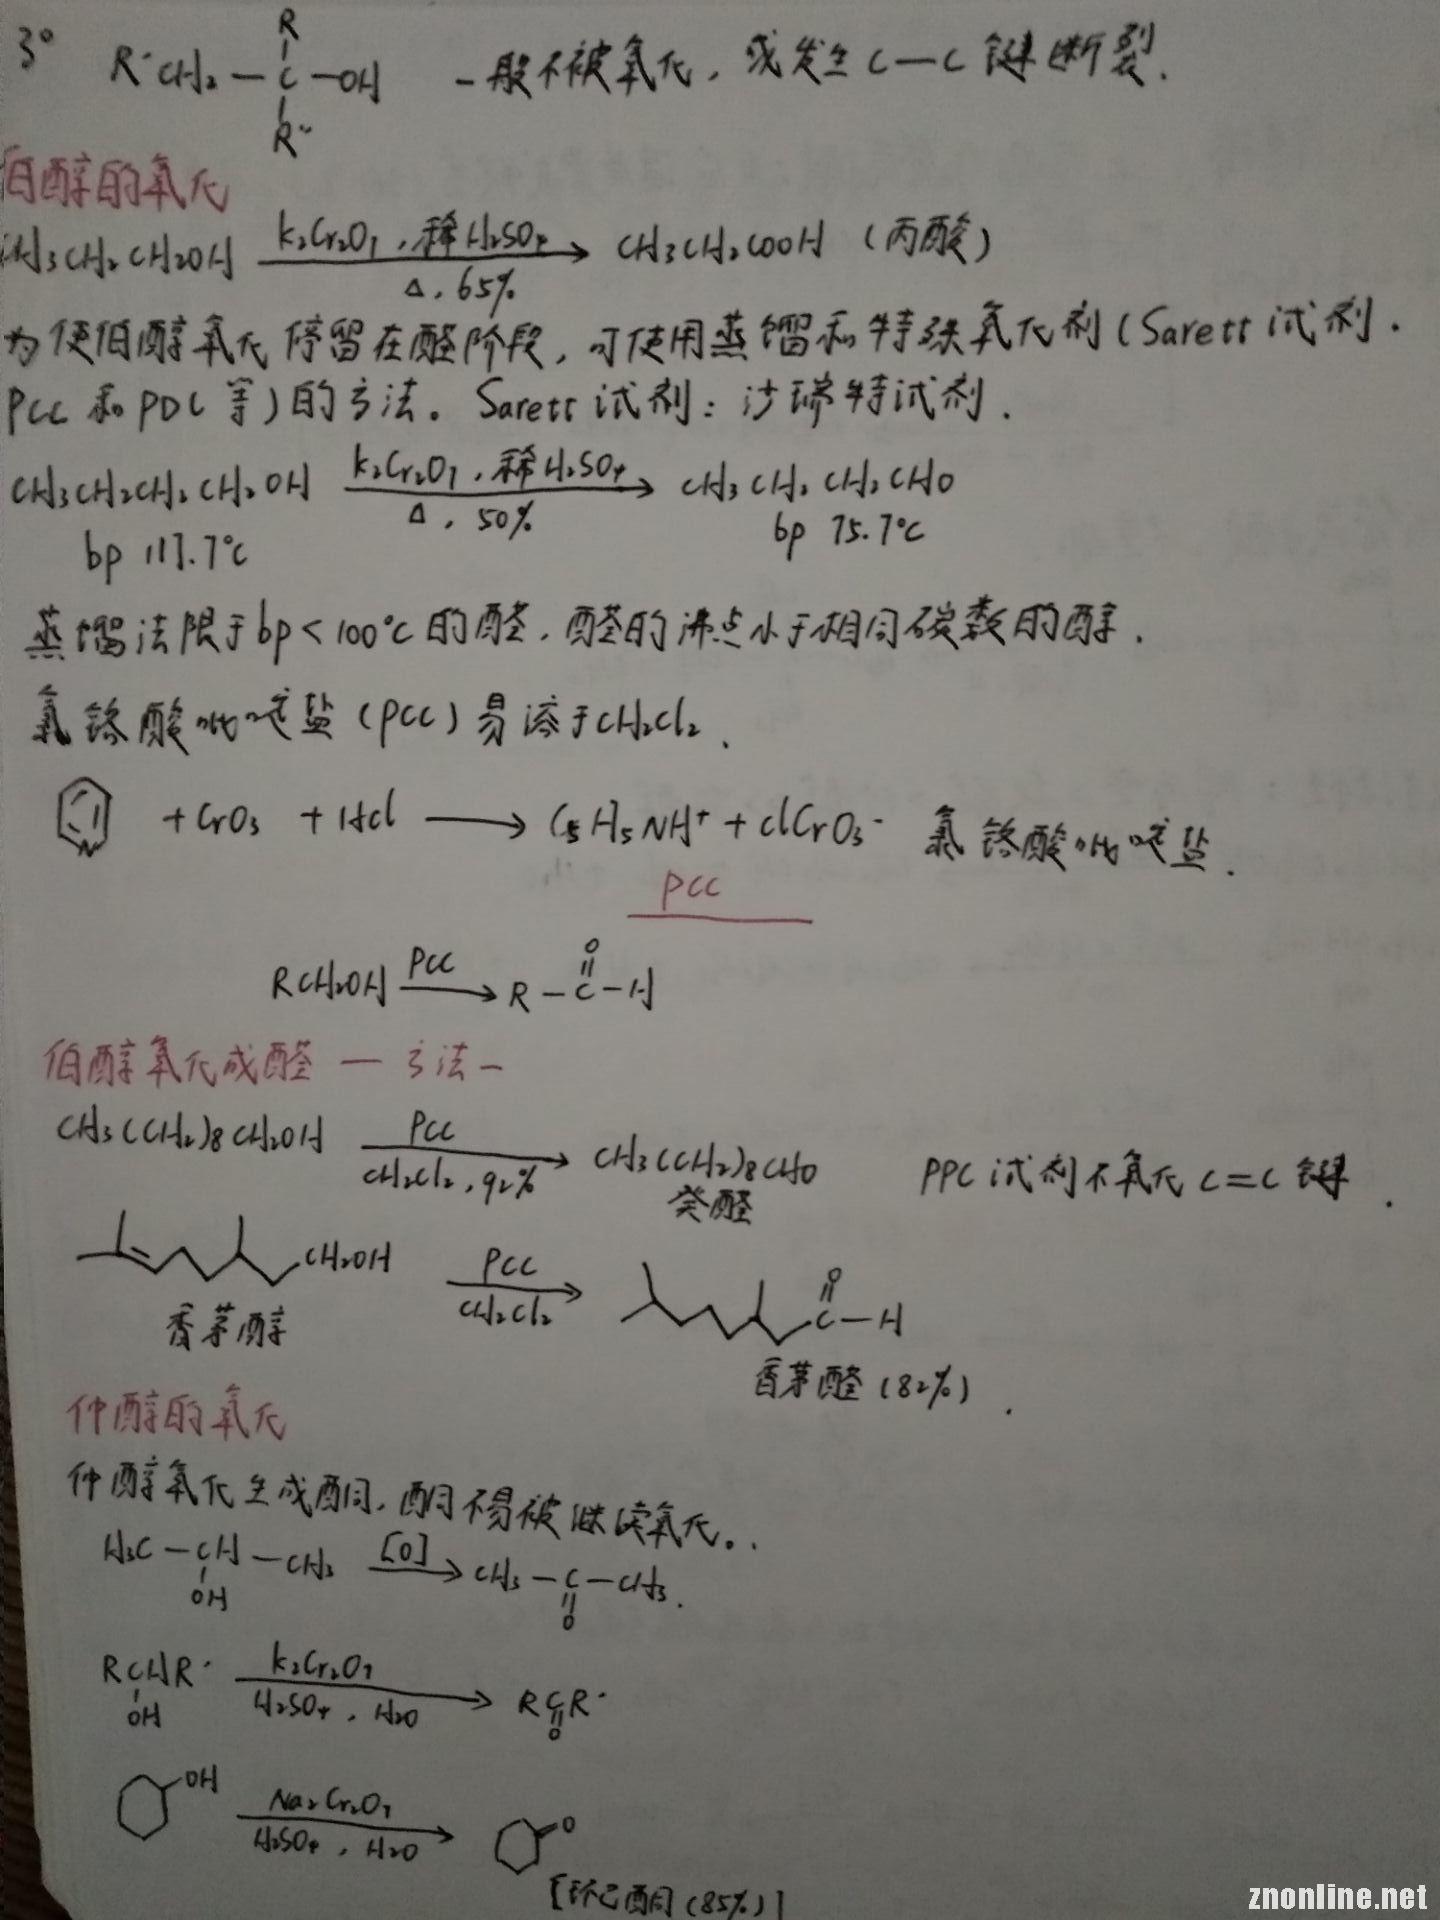 3°
R
R'CH₂—C—OH 一般不被氧化，或发生C—C键断裂.
R''
伯醇的氧化
CH₃CH₂CH₂OH K₂Cr₂O₇，稀H₂SO₄ CH₃CH₂COOH（丙酸）
Δ，65%
为使伯醇氧化停留在醛阶段，可使用蒸馏和特殊氧化剂（Sarett试剂.
PCC和PDC等）的方法。Sarett试剂：沙瑞特试剂.
CH₃CH₂CH₂CH₂OH K₂Cr₂O₇，稀H₂SO₄ CH₃CH₂CH₂CHO
Δ，50%
bp 117.7℃ bp 75.7℃
蒸馏法限于bp<100℃的醛，醛的沸点小于相同碳数的醇.
氯铬酸吡啶盐（PCC）易溶于CH₂Cl₂.
N +CrO₃ +HCl → C₅H₅NH⁺+ClCrO₃⁻ 氯铬酸吡啶盐.
PCC
RCH₂OH PCC → R—C—H
O
伯醇氧化成醛—方法一
CH₃(CH₂)₈CH₂OH PCC CH₃(CH₂)₈CHO PPC试剂不氧化C=C键.
CH₂Cl₂，92% 癸醛
CH₂OH PCC O
CH₂Cl₂ C—H
香茅醇 香茅醛（82%）.
仲醇的氧化
仲醇氧化生成酮，酮不易被继续氧化。.
H₃C—CH—CH₃ [O] → CH₃—C—CH₃.
OH O
RCHR' K₂Cr₂O₇ RCR'
OH H₂SO₄，H₂O O
OH Na₂Cr₂O₇ O
H₂SO₄，H₂O
[环己酮（85%）]
znonline.net